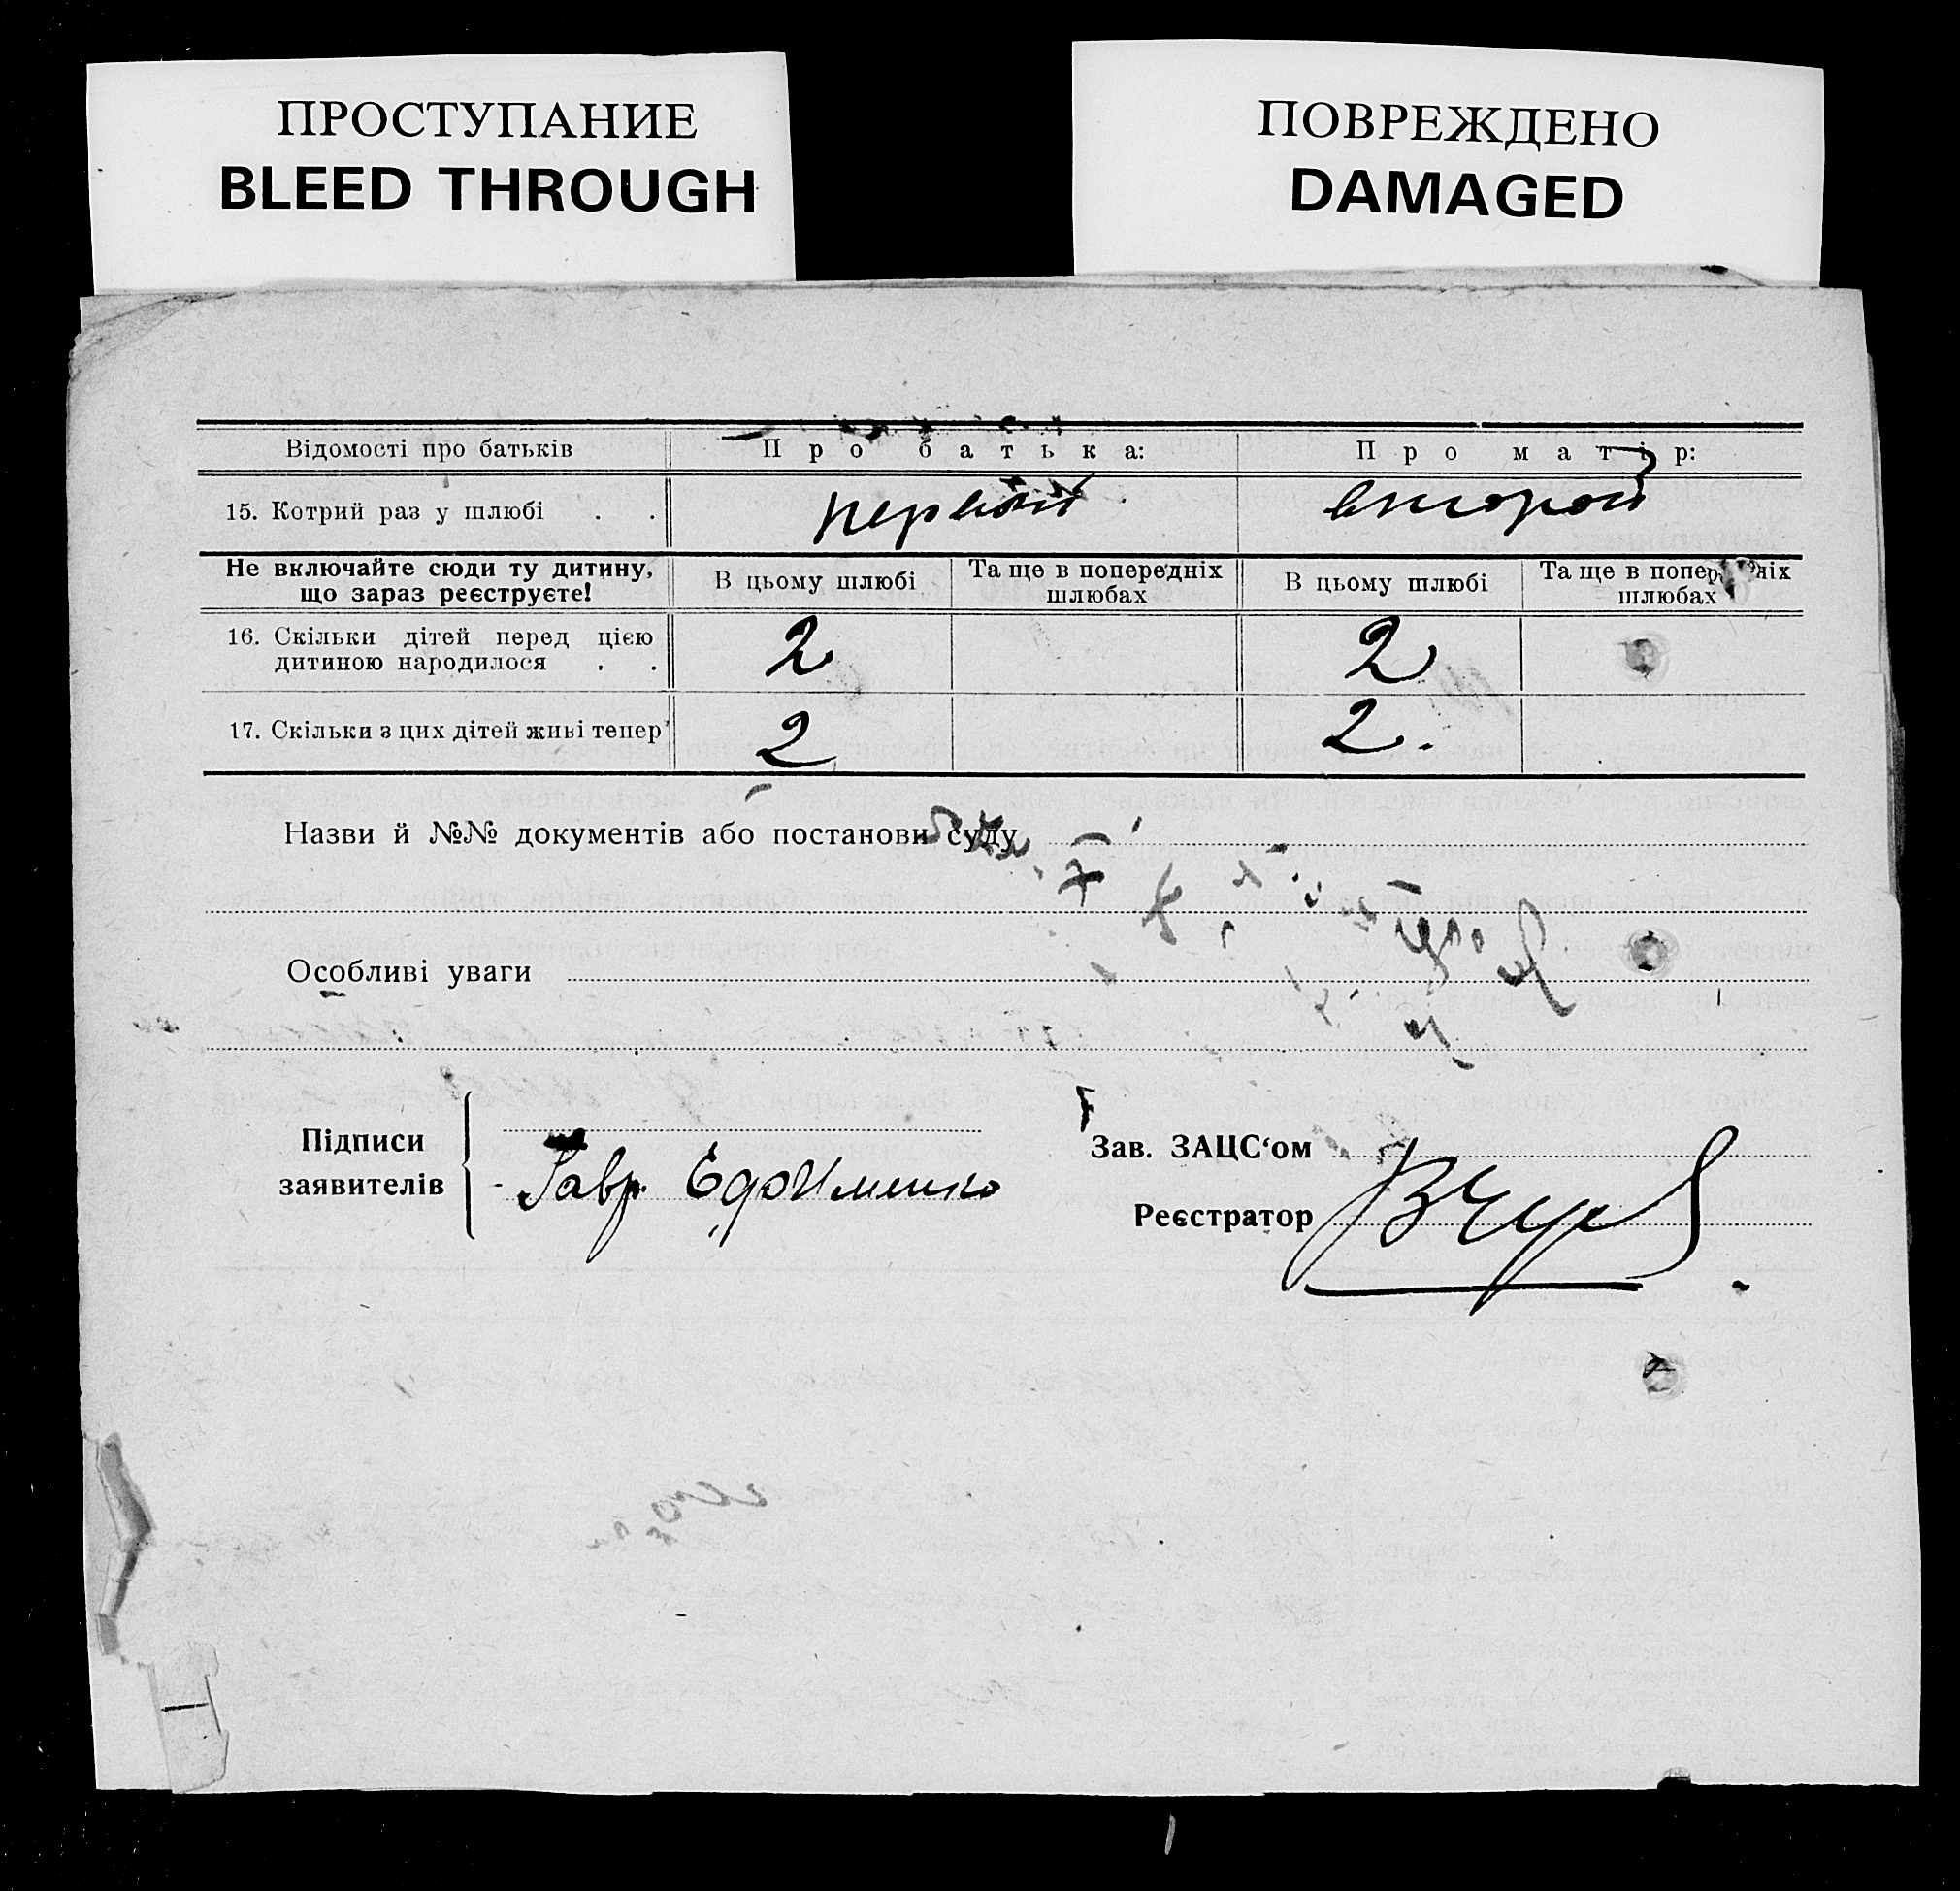 ПРОСТУПАНИЕ
BLEED THROUGH
ПОВРЕЖДЕНО
DAMAGED
Відомості про батьків Про батька: Про матір:
15. Котрий раз у шлюбі . . первый второй
Не включайте сюди ту дитину, що зараз реєструєте! В цьому шлюбі Та ще в попередніх шлюбах В цьому шлюбі Та ще в попередніх шлюбах
16. Скільки дітей перед цією
дитиною народилося . . 2 2
17. Скільки з цих дітей живі тепер 2 2.
Назви й №№ документів або постанови суду
Особливі уваги
Підписи
заявителів
Гавр.
Зав. ЗАЦС‘ом
Реєстратор